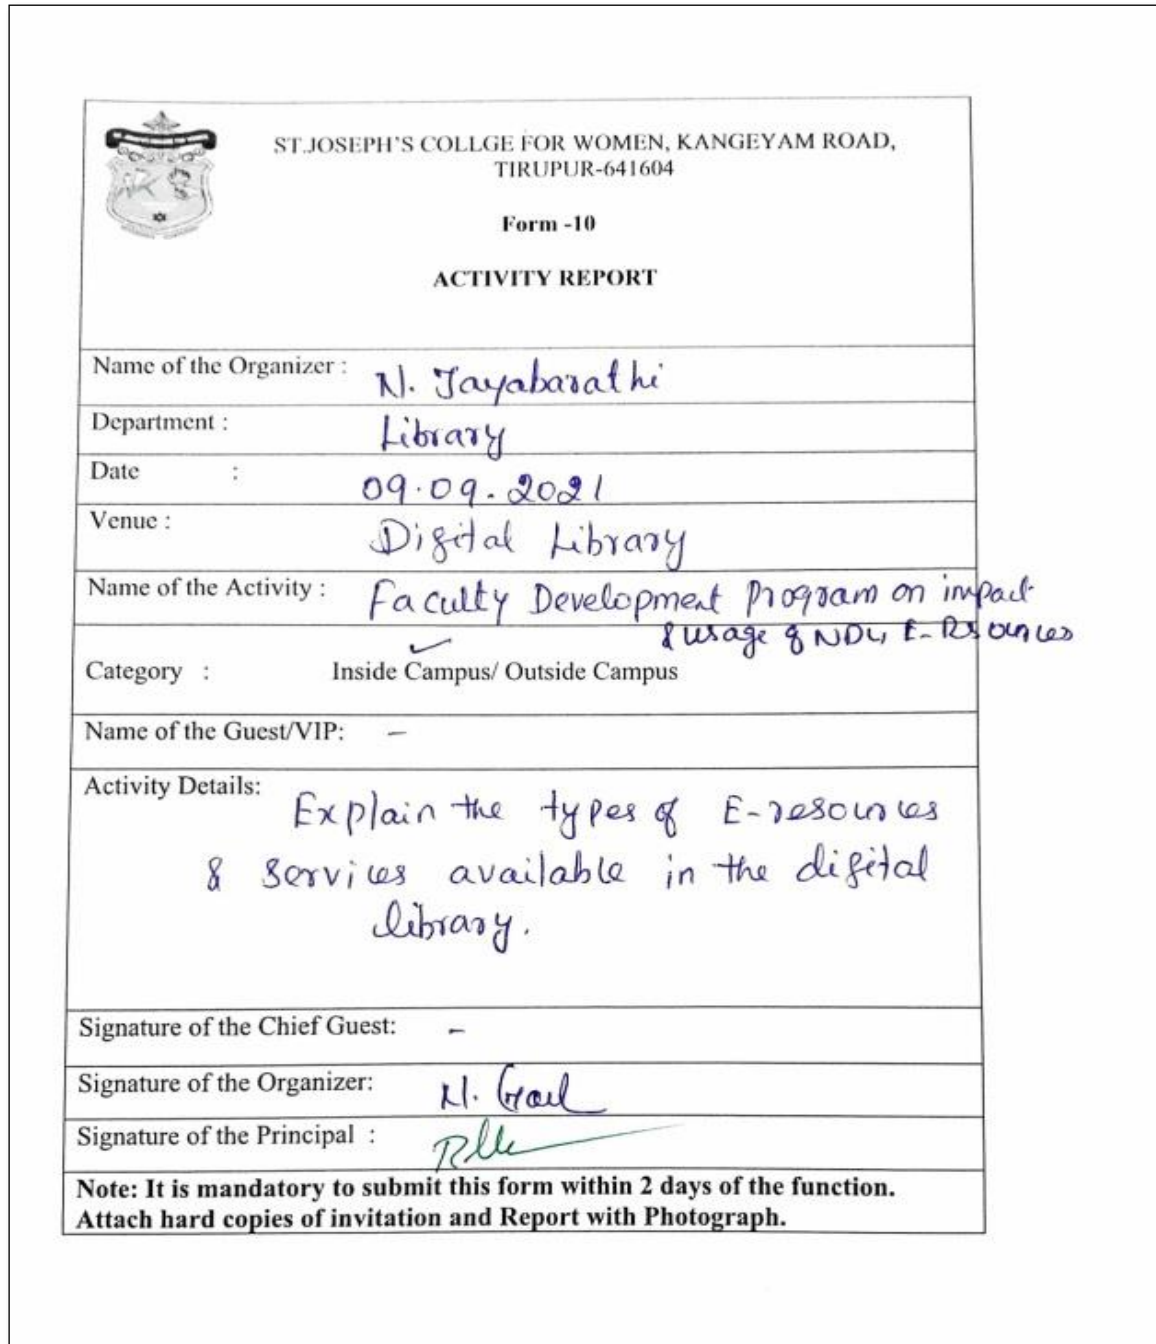 ST.JOSEPH'S COLLGE FOR WOMEN, KANGEYAM ROAD,
TIRUPUR-641604
Form -10
ACTIVITY REPORT
Name of the Organizer : N. Jayabarathi
Department : Library
Date : 09.09.2021
Venue : Digital Library
Name of the Activity : Faculty Development Program on impact
& usage of NDL, E-Rsources
Category : Inside Campus/ Outside Campus
Name of the Guest/VIP: -
Activity Details:
Explain the types of E-resources
& Services available in the digital
library.
Signature of the Chief Guest: -
Signature of the Organizer: N.
Signature of the Principal :
Note: It is mandatory to submit this form within 2 days of the function.
Attach hard copies of invitation and Report with Photograph.